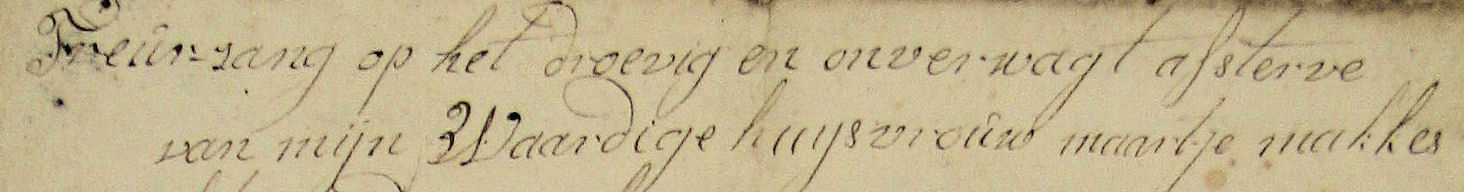 Treûr-zang op het droevig en onverwagt afsterve
van mijn Waardige huijsvroûw maartje makkes